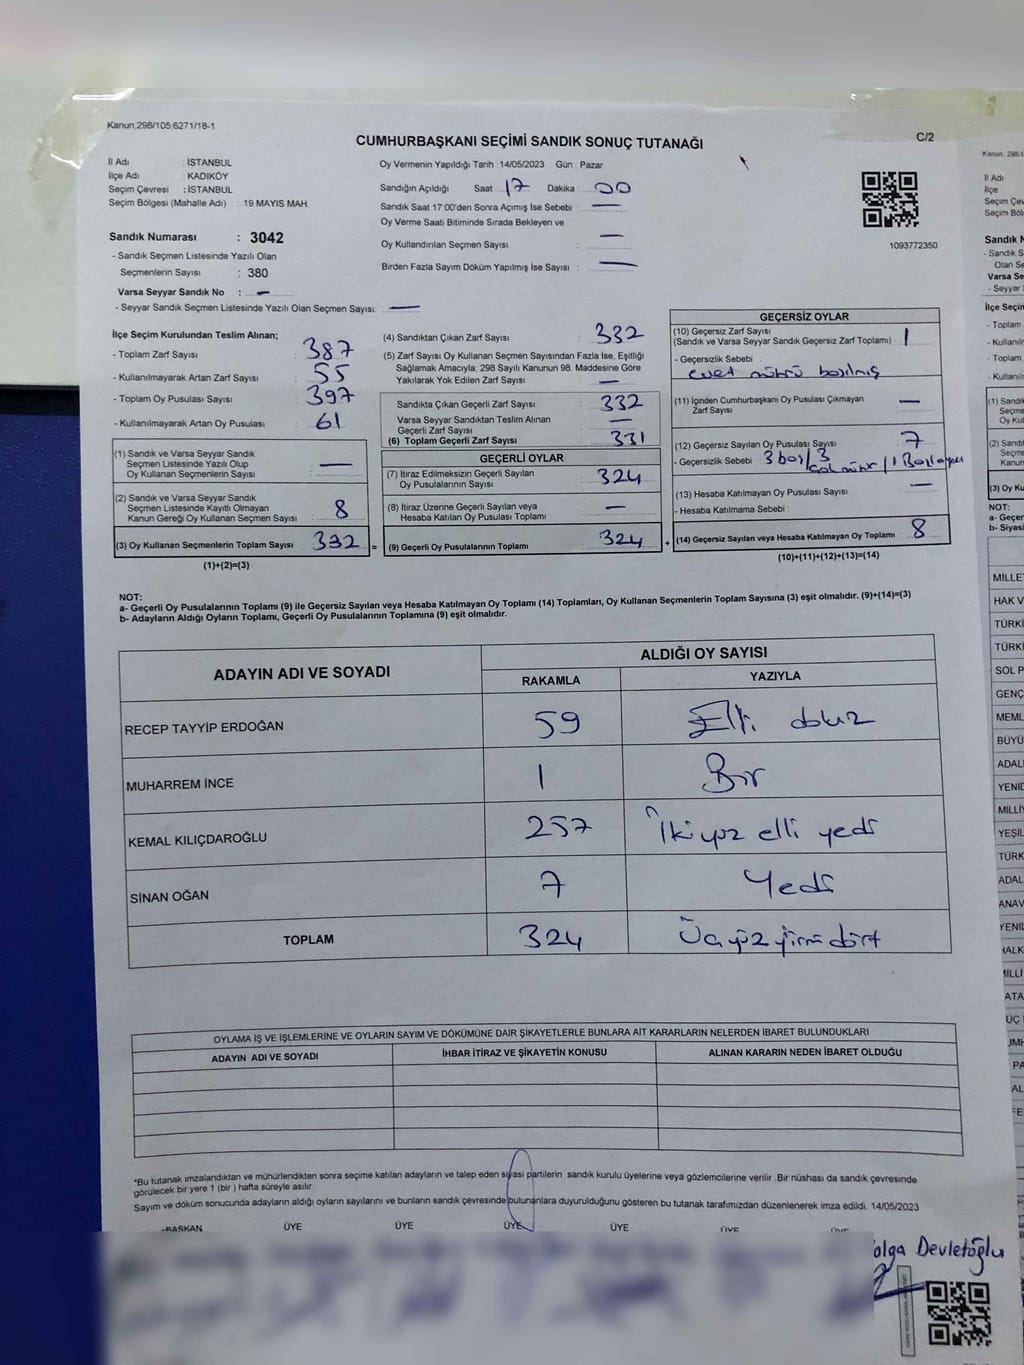 Kanun:298/105;6271/18-1
CUMHURBAŞKANI SEÇİMİ SANDIK SONUÇ TUTANAĞI
C/2
İl Adı İSTANBUL
İlçe Adı : KADIKÖY
Seçim Çevresi : İSTANBUL
Seçim Bölgesi (Mahalle Adı) : 19 MAYIS MAH.
Sandık Numarası : 3042
- Sandık Seçmen Listesinde Yazılı Olan
Seçmenlerin Sayısı : 380
Varsa Seyyar Sandık No : —
- Seyyar Sandık Seçmen Listesinde Yazılı Olan Seçmen Sayısı: —
Oy Vermenin Yapıldığı Tarih : 14/05/2023 Gün : Pazar
Sandığın Açıldığı Saat 17 Dakika 00
Sandık Saat 17:00'den Sonra Açımış İse Sebebi : —
Oy Verme Saati Bitiminde Sırada Bekleyen ve
Oy Kullandırılan Seçmen Sayısı : —
Birden Fazla Sayım Döküm Yapılmış İse Sayısı : —
1093772350
İlçe Seçim Kurulundan Teslim Alınan;
- Toplam Zarf Sayısı : 387
- Kullanılmayarak Artan Zarf Sayısı : 55
- Toplam Oy Pusulası Sayısı : 397
- Kullanılmayarak Artan Oy Pusulası : 61
(1) Sandık ve Varsa Seyyar Sandık
Seçmen Listesinde Yazılı Olup
Oy Kullanan Seçmenlerin Sayısı : —
(2) Sandık ve Varsa Seyyar Sandık
Seçmen Listesinde Kayıtlı Olmayan
Kanun Gereği Oy Kullanan Seçmen Sayısı : 8
(3) Oy Kullanan Seçmenlerin Toplam Sayısı : 332 =
(1)+(2)=(3)
(4) Sandıktan Çıkan Zarf Sayısı : 332
(5) Zarf Sayısı Oy Kullanan Seçmen Sayısından Fazla İse, Eşitliği
Sağlamak Amacıyla, 298 Sayılı Kanunun 98. Maddesine Göre
Yakılarak Yok Edilen Zarf Sayısı : —
Sandıkta Çıkan Geçerli Zarf Sayısı : 332
Varsa Seyyar Sandıktan Teslim Alınan
Geçerli Zarf Sayısı : —
(6) Toplam Geçerli Zarf Sayısı : 331
GEÇERLİ OYLAR
(7) İtiraz Edilmeksizin Geçerli Sayılan
Oy Pusulalarının Sayısı : 324
(8) İtiraz Üzerine Geçerli Sayılan veya
Hesaba Katılan Oy Pusulası Toplamı : —
(9) Geçerli Oy Pusulalarının Toplamı : 324 +
GEÇERSİZ OYLAR
(10) Geçersiz Zarf Sayısı
(Sandık ve Varsa Seyyar Sandık Geçersiz Zarf Toplamı) : 1
- Geçersizlik Sebebi :
evet mührü basılmış
(11) İçinden Cumhurbaşkanı Oy Pusulası Çıkmayan
Zarf Sayısı : —
(12) Geçersiz Sayılan Oy Pusulası Sayısı : 7
- Geçersizlik Sebebi 3 boş/3
(13) Hesaba Katılmayan Oy Pusulası Sayısı : —
- Hesaba Katılmama Sebebi :
(14) Geçersiz Sayılan veya Hesaba Katılmayan Oy Toplamı : 8
(10)+(11)+(12)+(13)=(14)
NOT:
a- Geçerli Oy Pusulalarının Toplamı (9) ile Geçersiz Sayılan veya Hesaba Katılmayan Oy Toplamı (14) Toplamları, Oy Kullanan Seçmenlerin Toplam Sayısına (3) eşit olmalıdır. (9)+(14)=(3)
b- Adayların Aldığı Oyların Toplamı, Geçerli Oy Pusulalarının Toplamına (9) eşit olmalıdır.
ADAYIN ADI VE SOYADI
ALDIĞI OY SAYISI
RAKAMLA YAZIYLA
RECEP TAYYİP ERDOĞAN 59 Elli dokuz
MUHARREM İNCE 1 Bir
KEMAL KILIÇDAROĞLU 257 İkiyüz elli yedi
SİNAN OĞAN 7 Yedi
TOPLAM 324 Üçyüz yirmi dört
OYLAMA İŞ VE İŞLEMLERİNE VE OYLARIN SAYIM VE DÖKÜMÜNE DAİR ŞİKAYETLERLE BUNLARA AİT KARARLARIN NELERDEN İBARET BULUNDUKLARI
ADAYIN ADI VE SOYADI İHBAR İTİRAZ VE ŞİKAYETİN KONUSU ALINAN KARARIN NEDEN İBARET OLDUĞU
*Bu tutanak imzalandıktan ve mühürlendikten sonra seçime katılan adayların ve talep eden siyasi partilerin sandık kurulu üyelerine veya gözlemcilerine verilir. Bir nüshası da sandık çevresinde
görülecek bir yere 1 (bir ) hafta süreyle asılır.
Sayım ve döküm sonucunda adayların aldığı oyların sayılarını ve bunların sandık çevresinde bulunanlara duyurulduğunu gösteren bu tutanak tarafımızdan düzenlenerek imza edildi. 14/05/2023
BAŞKAN ÜYE ÜYE ÜYE ÜYE ÜYE ÜYE
olga Devletoğlu
Kanun; 298/1
İl Adı
İlçe
Seçim Çev
Seçim Böl
Sandık N
- Sandık S
Olan Se
Varsa Se
- Seyyar
İlçe Seçin
- Toplam
- Kullanılr
- Toplam
- Kullanıl
(1) Sandı
(2) Sandı
(3) Oy Ku
NOT:
a- Geçer
b- Siyas
MİLLET
HAK V
TÜRKİ
TÜRKİ
SOL P
GENÇ
MEML
BÜYÜ
ADAL
YENİD
MİLLİ
YEŞİL
TÜRK
ADAL
ANAV
YENİL
HALK
MİLLİ
ATA